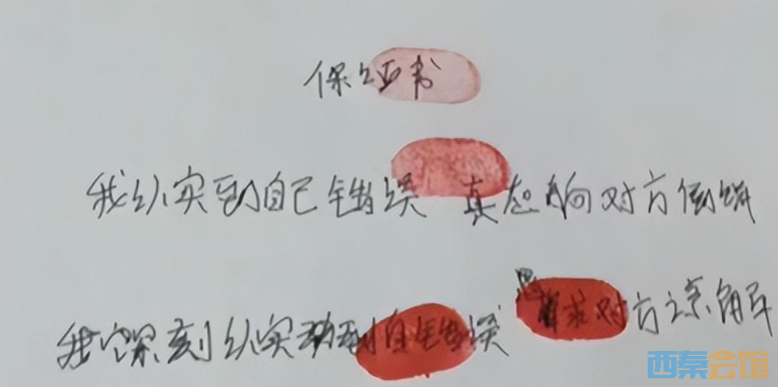 保证书
我认实到自己错误 真心向对方道歉
我深刻认实到自己错误 请求对方谅解
西秦会馆